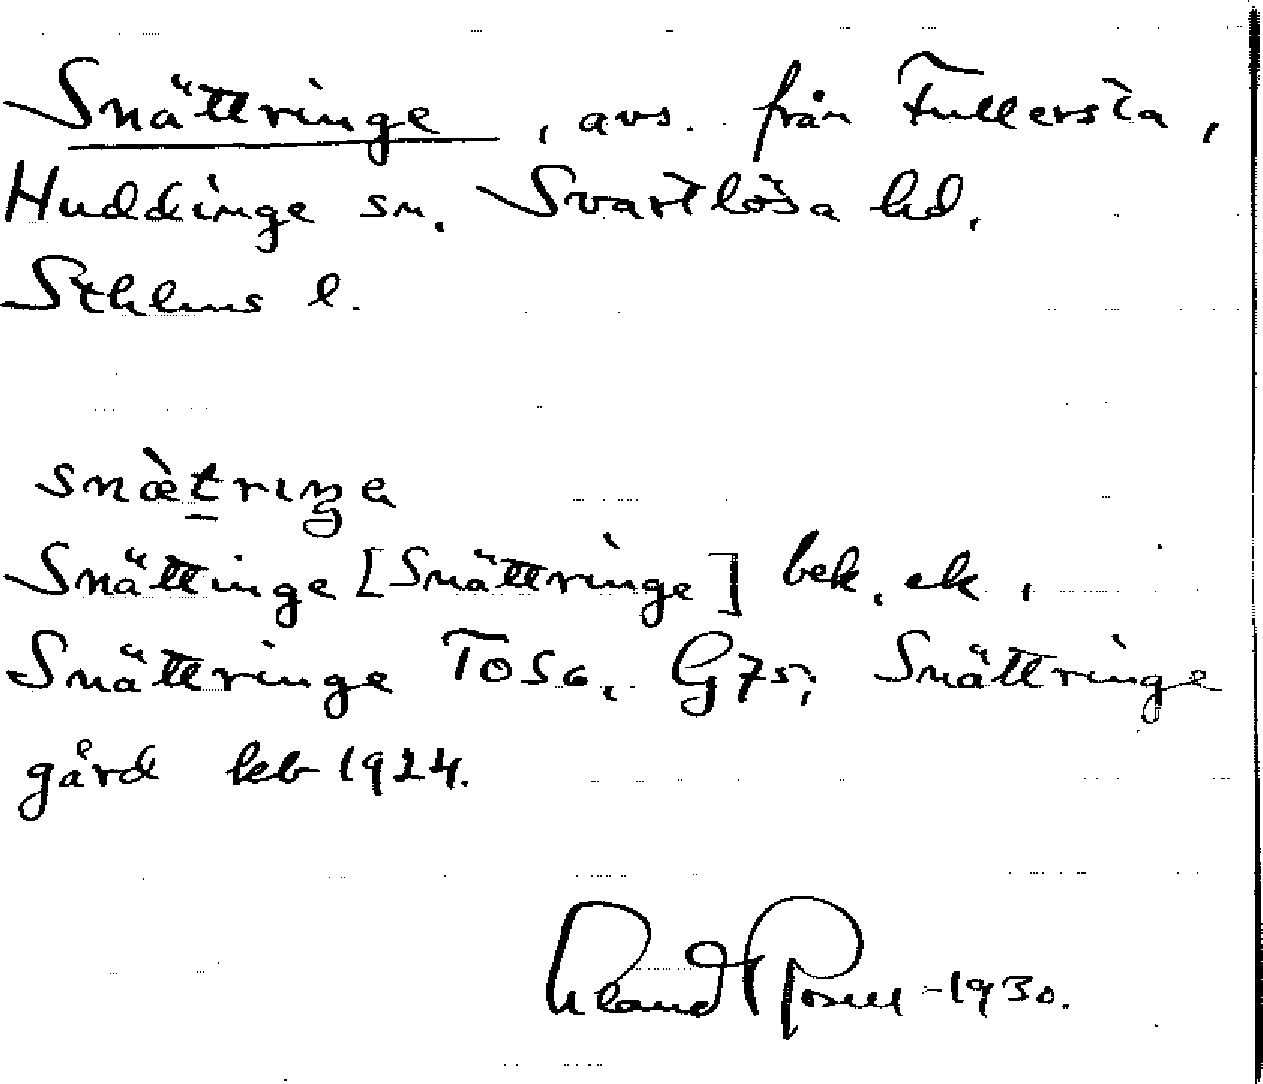 Snättringe, avs. från Fullersta,
Huddinge sn. Svartlösa hd.
Sthlms l.
snæ̀triŋe
Snättinge [Snättringe] bek. ek.,
Snättringe TOSG, G75; Snättringe
gård kb 1924.
-1930.